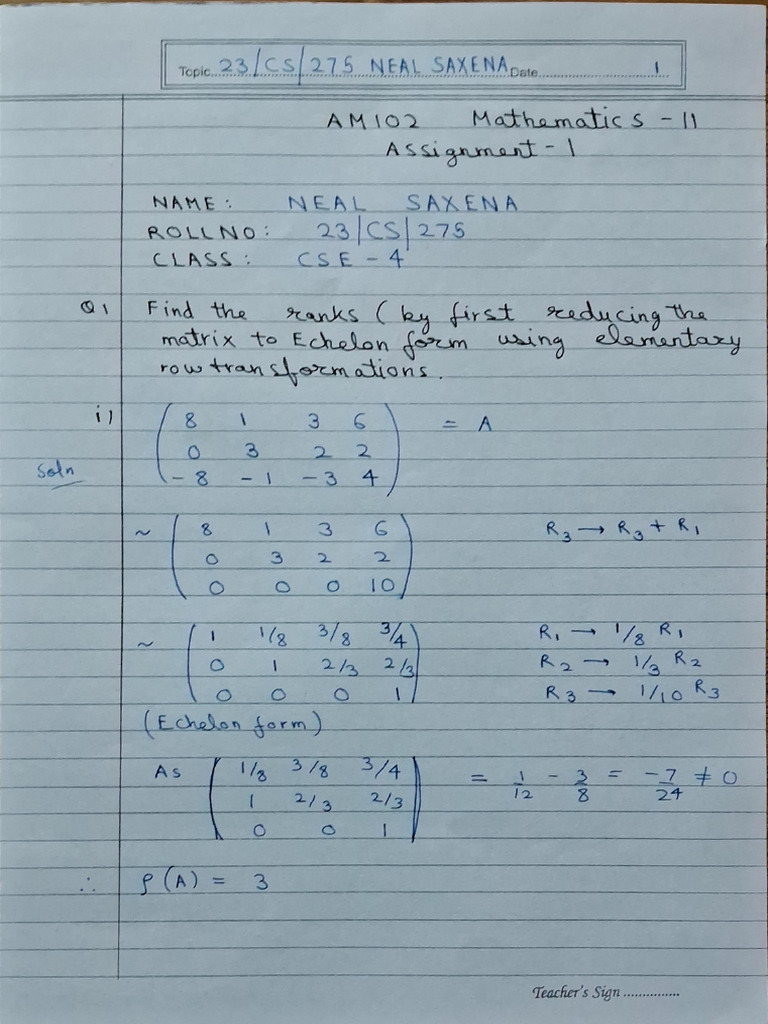 Topic 23/CS/275 NEAL SAXENA Date 1
AM102 Mathematics - II
Assignment - 1
NAME : NEAL SAXENA
ROLL NO : 23/CS/275
CLASS : CSE - 4
Q1 Find the ranks ( by first reducing the
matrix to Echelon form using elementary
row transformations.
i) 8 1 3 6 = A
0 3 2 2
Soln - 8 - 1 - 3 4
~ 8 1 3 6 R3 → R3 + R1
0 3 2 2
0 0 0 10
~ 1 1/8 3/8 3/4 R1 → 1/8 R1
0 1 2/3 2/3 R2 → 1/3 R2
0 0 0 1 R3 → 1/10 R3
(Echelon form)
As 1/8 3/8 3/4 = 1/12 - 3/8 = -7/24 ≠ 0
1 2/3 2/3
0 0 1
∴ ρ(A) = 3
Teacher's Sign ...............